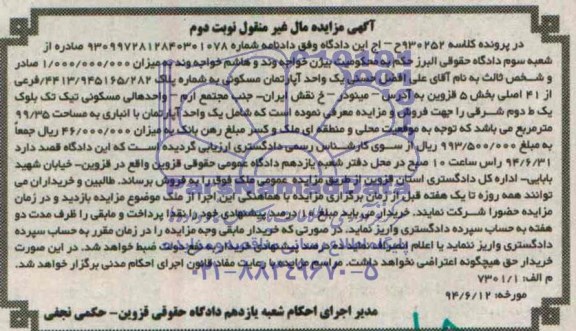 آگهی مزایده مال غیر منقول نوبت دوم
در پرونده کلاسه ۹۳۰۲۵۲ح – اج این دادگاه وفق دادنامه شماره ۹۳۰۹۹۷۲۸۱۲۸۴۰۳۰۱۰۷۸ صادره از
شعبه سوم دادگاه حقوقی البرز حکم به محکومیت بیژن خواجه وند و هاشم خواجه وند به میزان ۱/۰۰۰/۰۰۰/۰۰۰ صادر
و شخص ثالث به نام آقای علی افضل حسنی یک واحد آپارتمان مسکونی به شماره پلاک ۴۴۱۳/۹۴۵۱۶۵/۲۸۲فرعی
از ۴۱ اصلی بخش ۵ قزوین به آدرس – مینودر – خ نقش ایران- جنب مجتمع ارم – واحدهالی مسکونی تیک تک بلوک
یک ط دوم شرقی را جهت فروش و مزایده معرفی نموده است که شامل یک واحد آپارتمان با انباری به مساحت ۹۹/۳۵
مترمربع می باشد که توجه به موقعیت محلی و منطقه ای ملک و کسر مبلغ رهن بانک به میزان ۴۶/۰۰۰/۰۰۰ ریال جمعاً
به مبلغ ۹۹۳/۵۰۰/۰۰۰ ریال از سوی کارشناس رسمی دادگستری ارزیابی گردیده است که این دادگاه قصد دارد
۹۴/۶/۳۱ راس ساعت ۱۰ صبح در محل دفتر شعبه یازدهم دادگاه عمومی حقوقی قزوین واقع در قزوین- خیابان شهید
بابایی- اداره کل دادگستری استان قزوین از طریق مزایده عمومی ملک فوق را به فروش برساند. طالبین و خریداران می
توانند همه روزه تا یک هفته قبل از زمان برگزاری مزایده با هماهنگی این اجرا از ملک موضوع مزایده بازدید و در زمان
مزایده حضورا شرکت نمایند. خریدار می باید مبلغ ده درصد پیشنهادی خود را نقدا پرداخت و مابقی را ظرف مدت دو
هفته به حساب سپرده دادگستری واریز نماید. در صورتی که خریدار مابقی وجه مزایده را در زمان مقرر به حساب سپرده
دادگستری واریز ننماید یا اعلام انصراف نماید ده درصد پیشنهادی اولیه به نفع دولت ضبط خواهد شد. در این صورت
خریدار حق هیچگونه اعتراضی نخواهد داشت. مراسم مزایده با رعایت مفاد قانون اجرای احکام مدنی برگزار خواهد شد.
م الف: ۷۳۰۱/۱
مورخه: ۹۴/۶/۱۲
۰۲۱-۸۸۳۴۹۶۷۰-۵
مدیر اجرای احکام شعبه یازدهم دادگاه حقوقی قزوین- حکمی نجفی